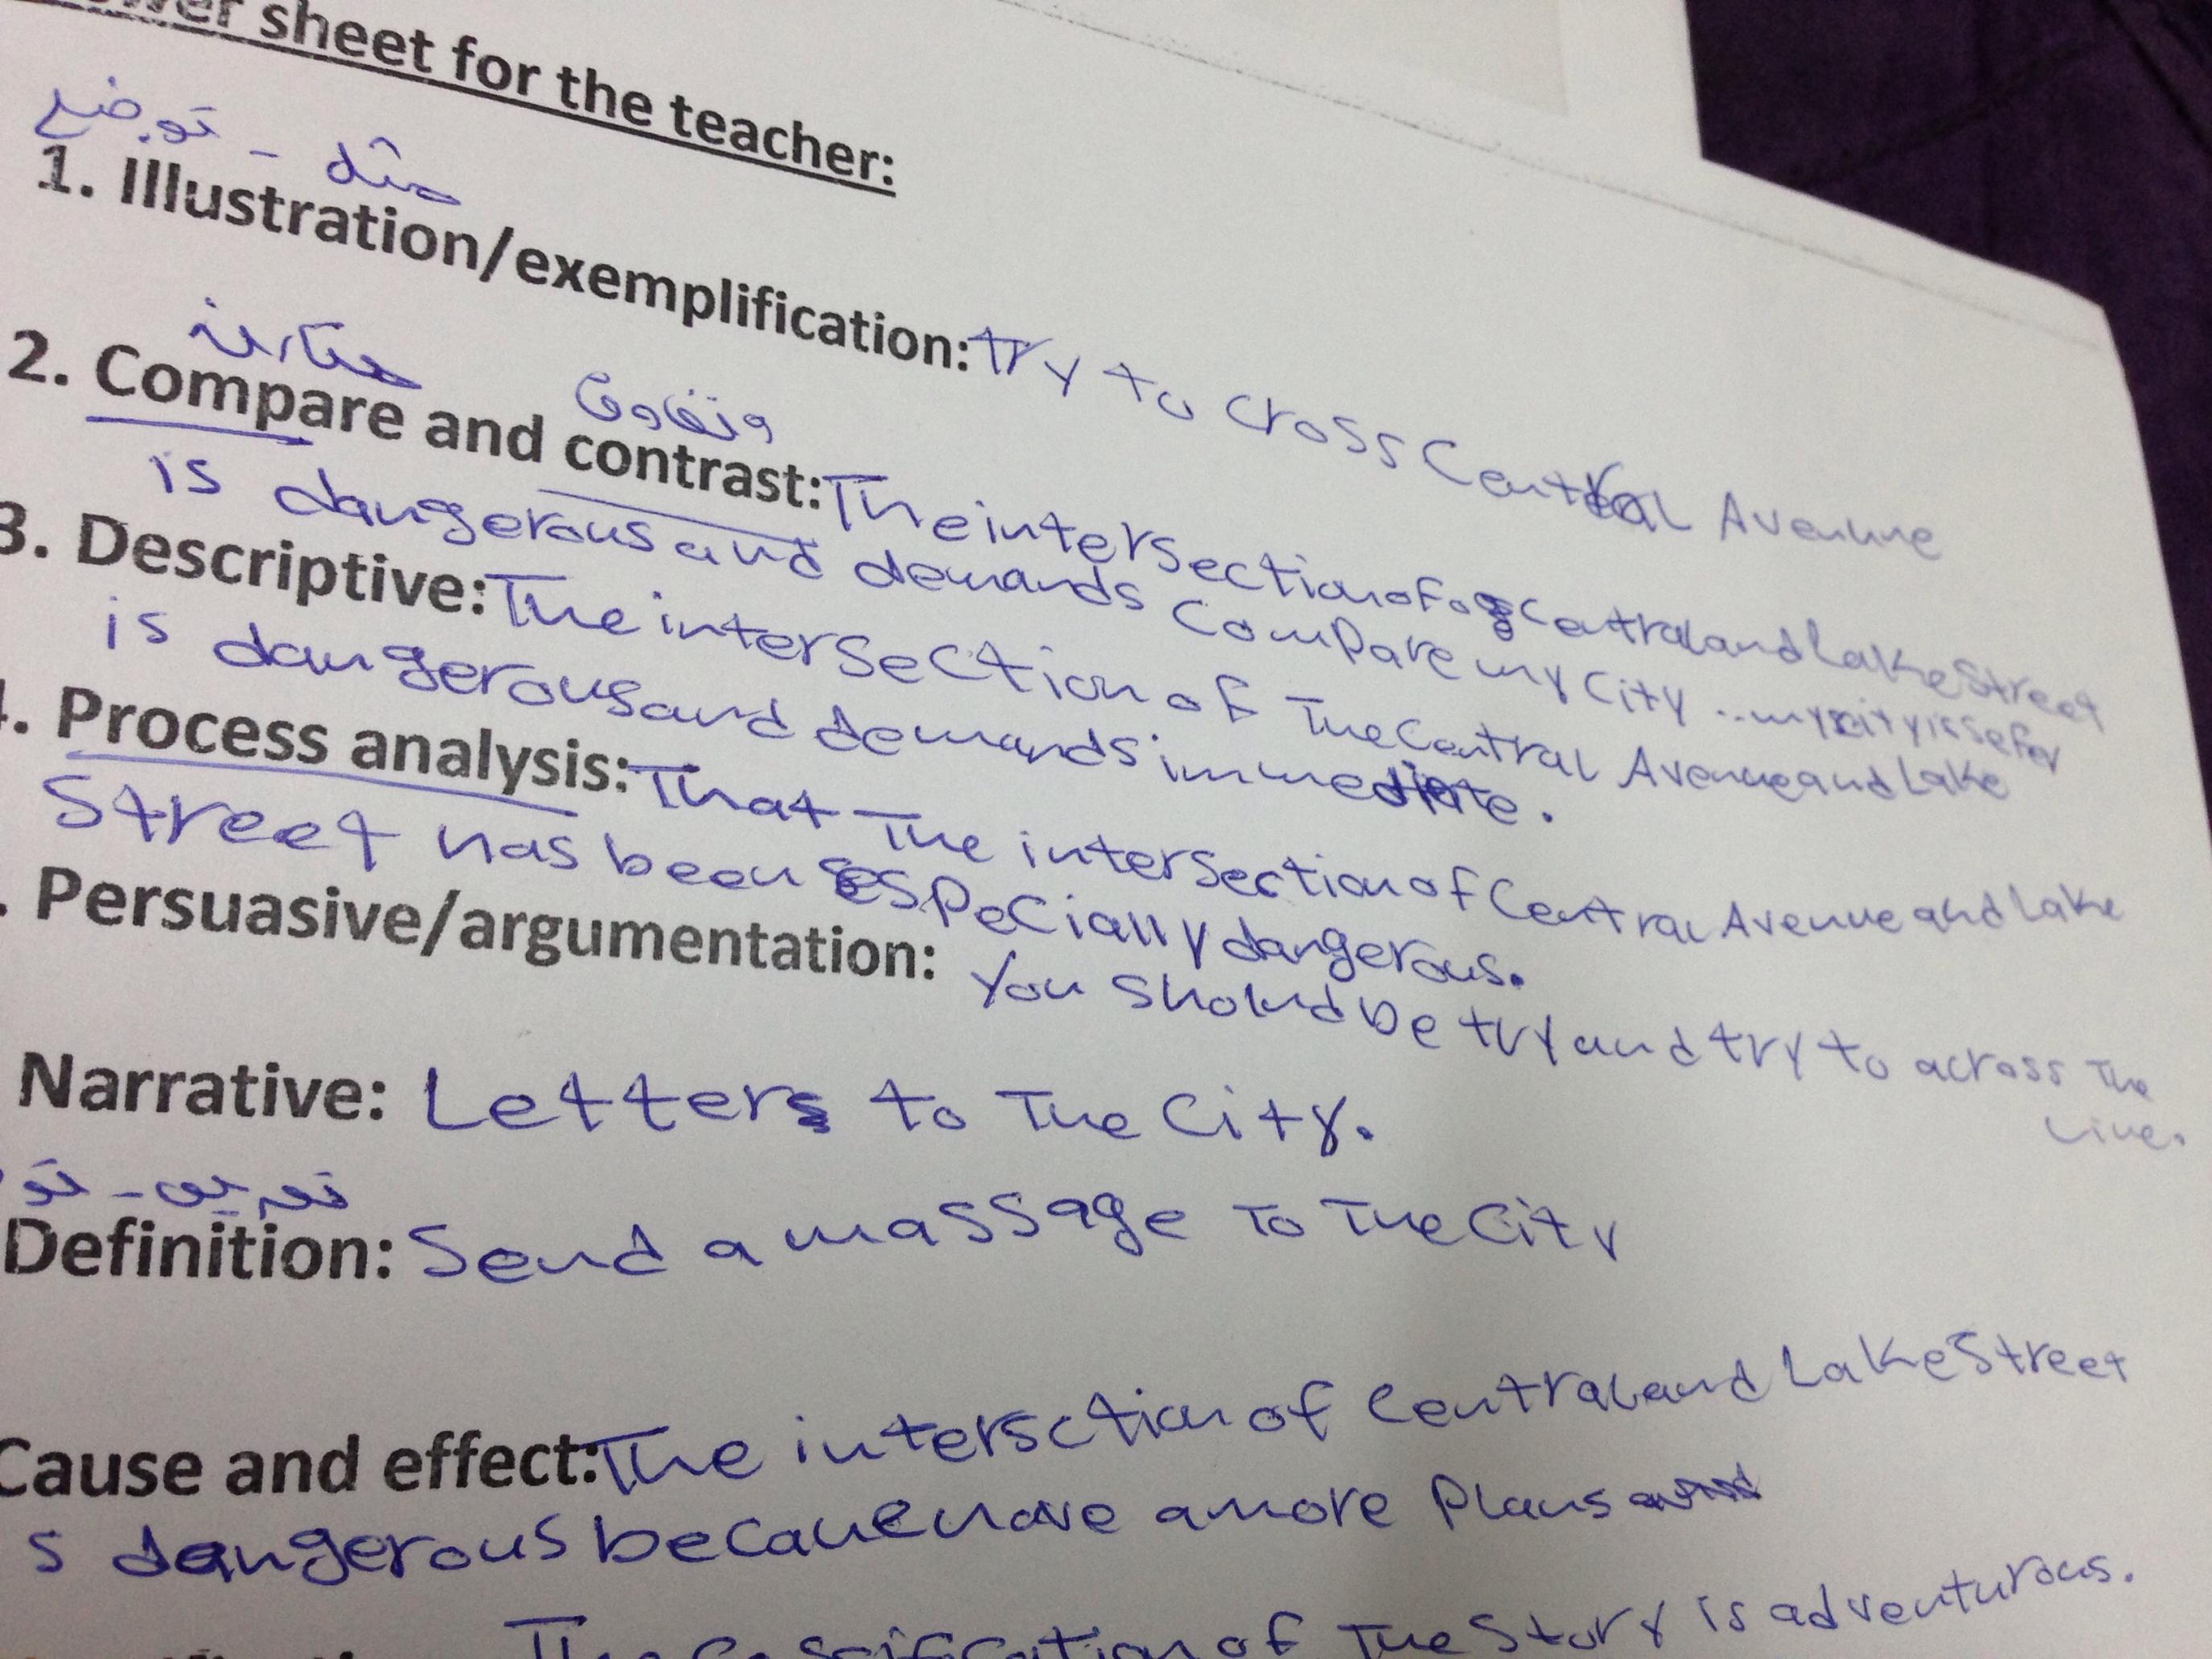 sheet for the teacher:
مثله - توضيح
1. Illustration/exemplification: Try to cross Central Avenune
مقارنة وتفاوت
2. Compare and contrast: The intersection of Central and Lake Street
is dangerous and demands Compare my City .. my city is sefer
3. Descriptive: The intersection of The Central Avenue and Lake
is dangerous and demands immediate.
. Process analysis: That The intersection of Central Avenue and Lake
Street has been especially dangerous.
. Persuasive/argumentation: You should be try and try to across The
Line.
Narrative: Letters to The City.
تعريف - تو
Definition: Send a massage To The City
Cause and effect: The intersction of Central and Lake Street
s dangerous becaue have a more Plans
The of The Story is adventurous.